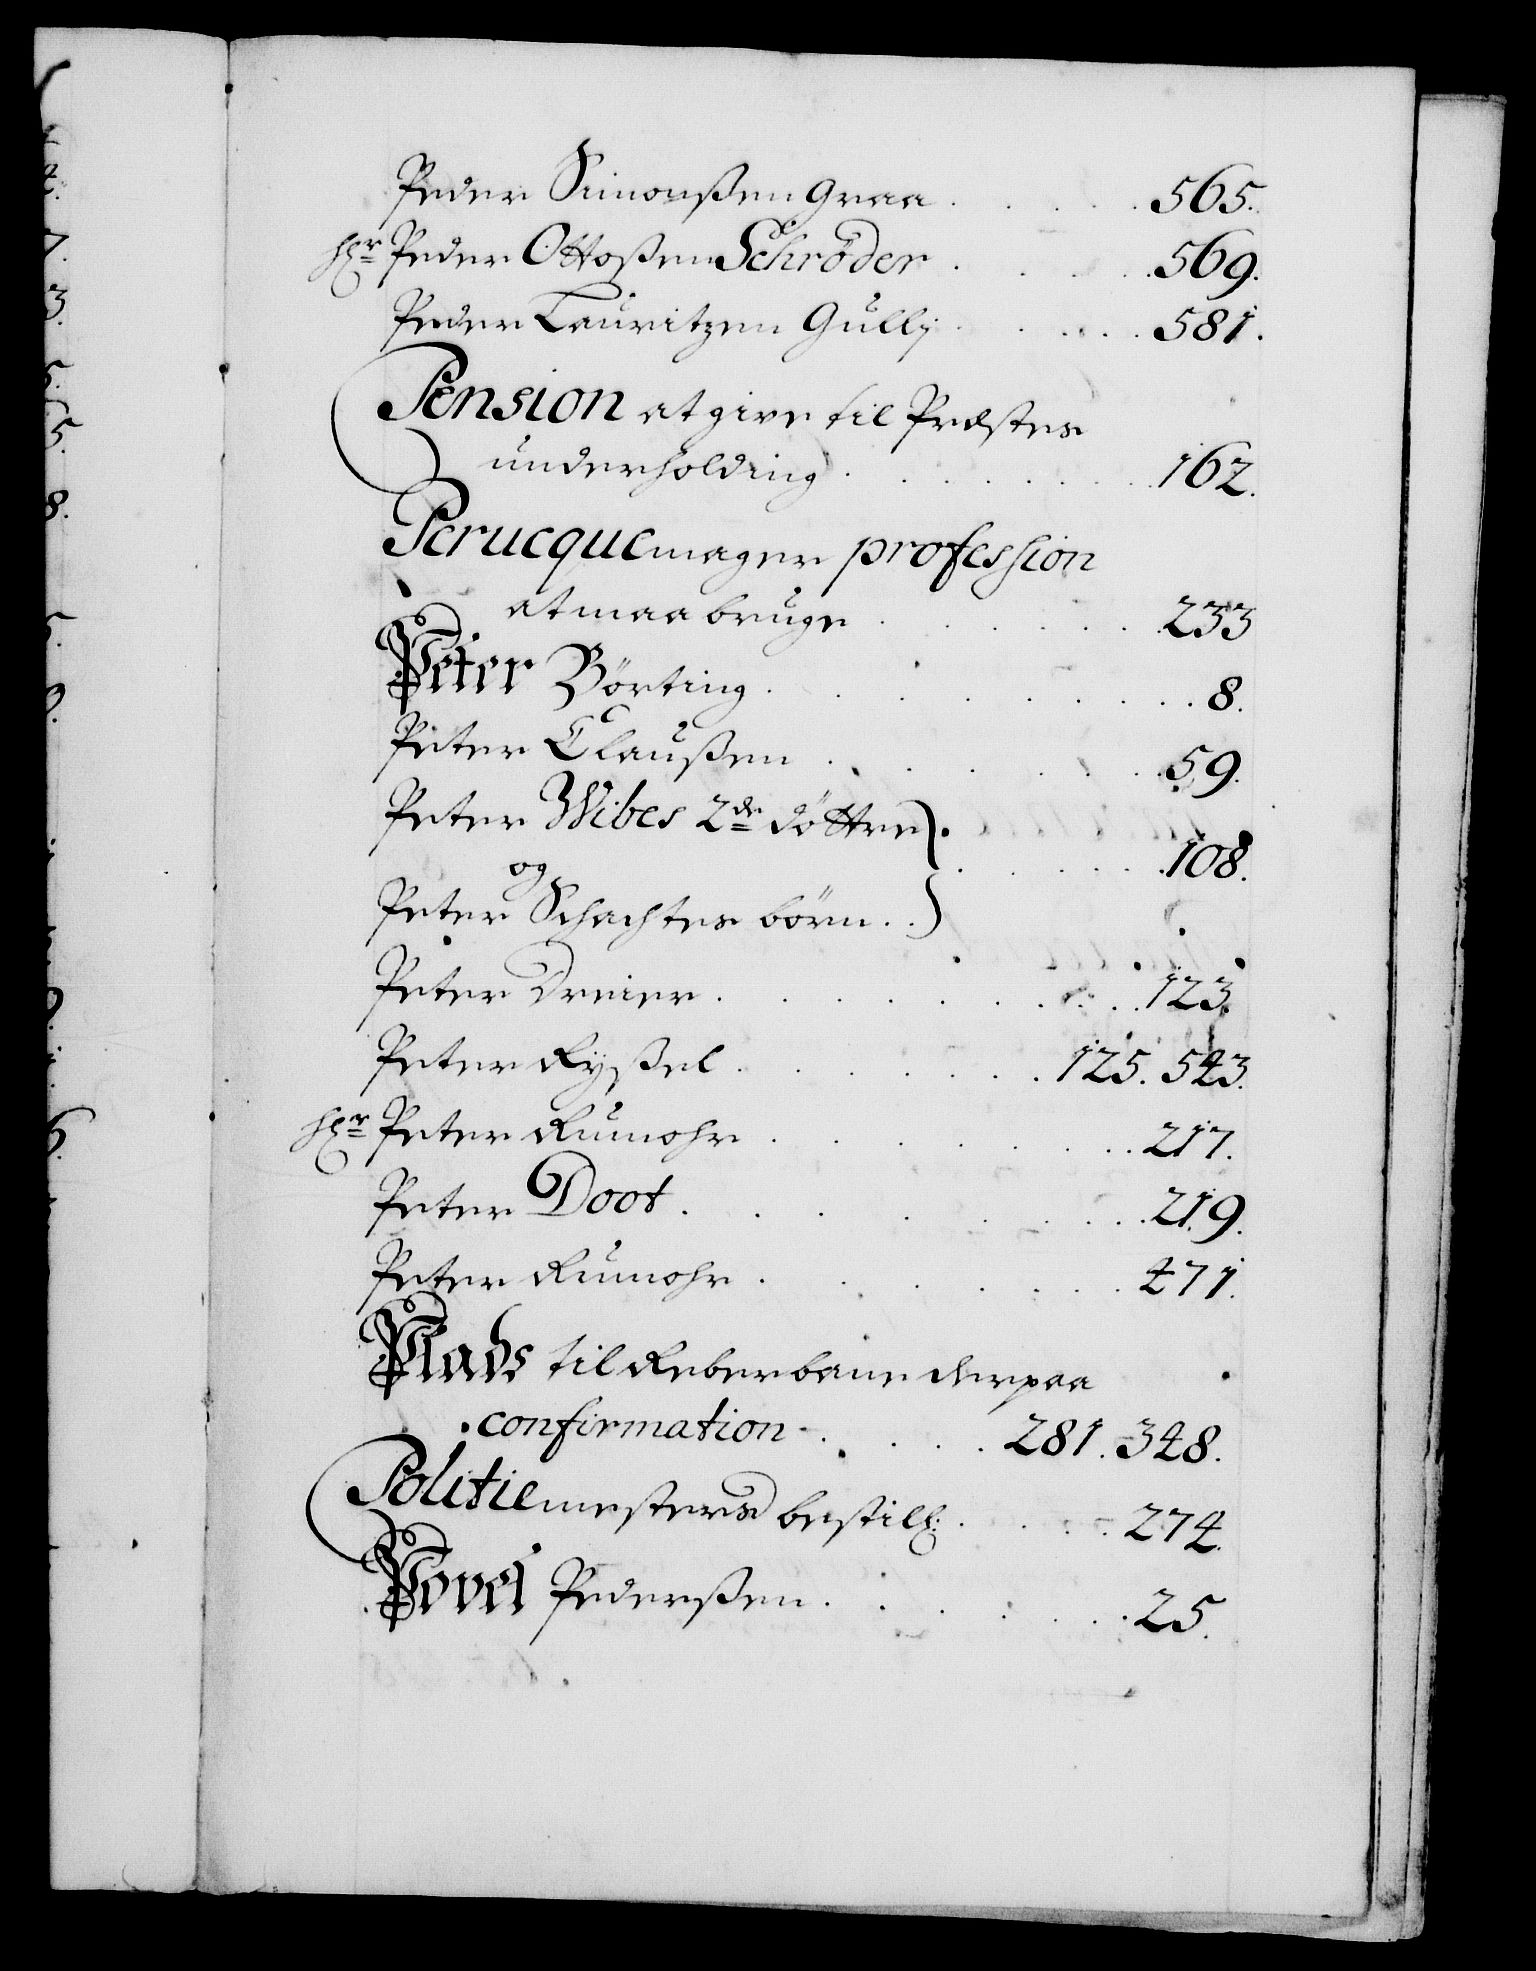 Peder Simonßen Graa . . . . . 565.
Hr Peder Ottoßen Schrøder . . . . 569.
Peder Lauritzen Gullj . . . . . 581.
Pension at give til Præstes
underholding . . . . . . . 162.
Perucquemager profession
at maa bruge . . . . . . 233
Peter Börting . . . . . . . . 8.
Peter Claußen . . . . . . . 59.
Peter Wibes 2de döttre
og . . . . . . 108.
Peter Schachtes börn . .
Peter Dreier . . . . . . . . 123.
Peter Ryßel . . . . . . . 125. 543.
Hr Peter Rumohr . . . . . . . 217.
Peter Doot . . . . . . . . 219.
Peter Rumohr . . . . . . . 471.
Plads til Reberbane derpaa
confirmation . . . . . 281. 348.
Politiemesters bestill: . . . . 274.
Povel Pederßen . . . . . . 25.
4.
7.
3.
5.
8.
6.